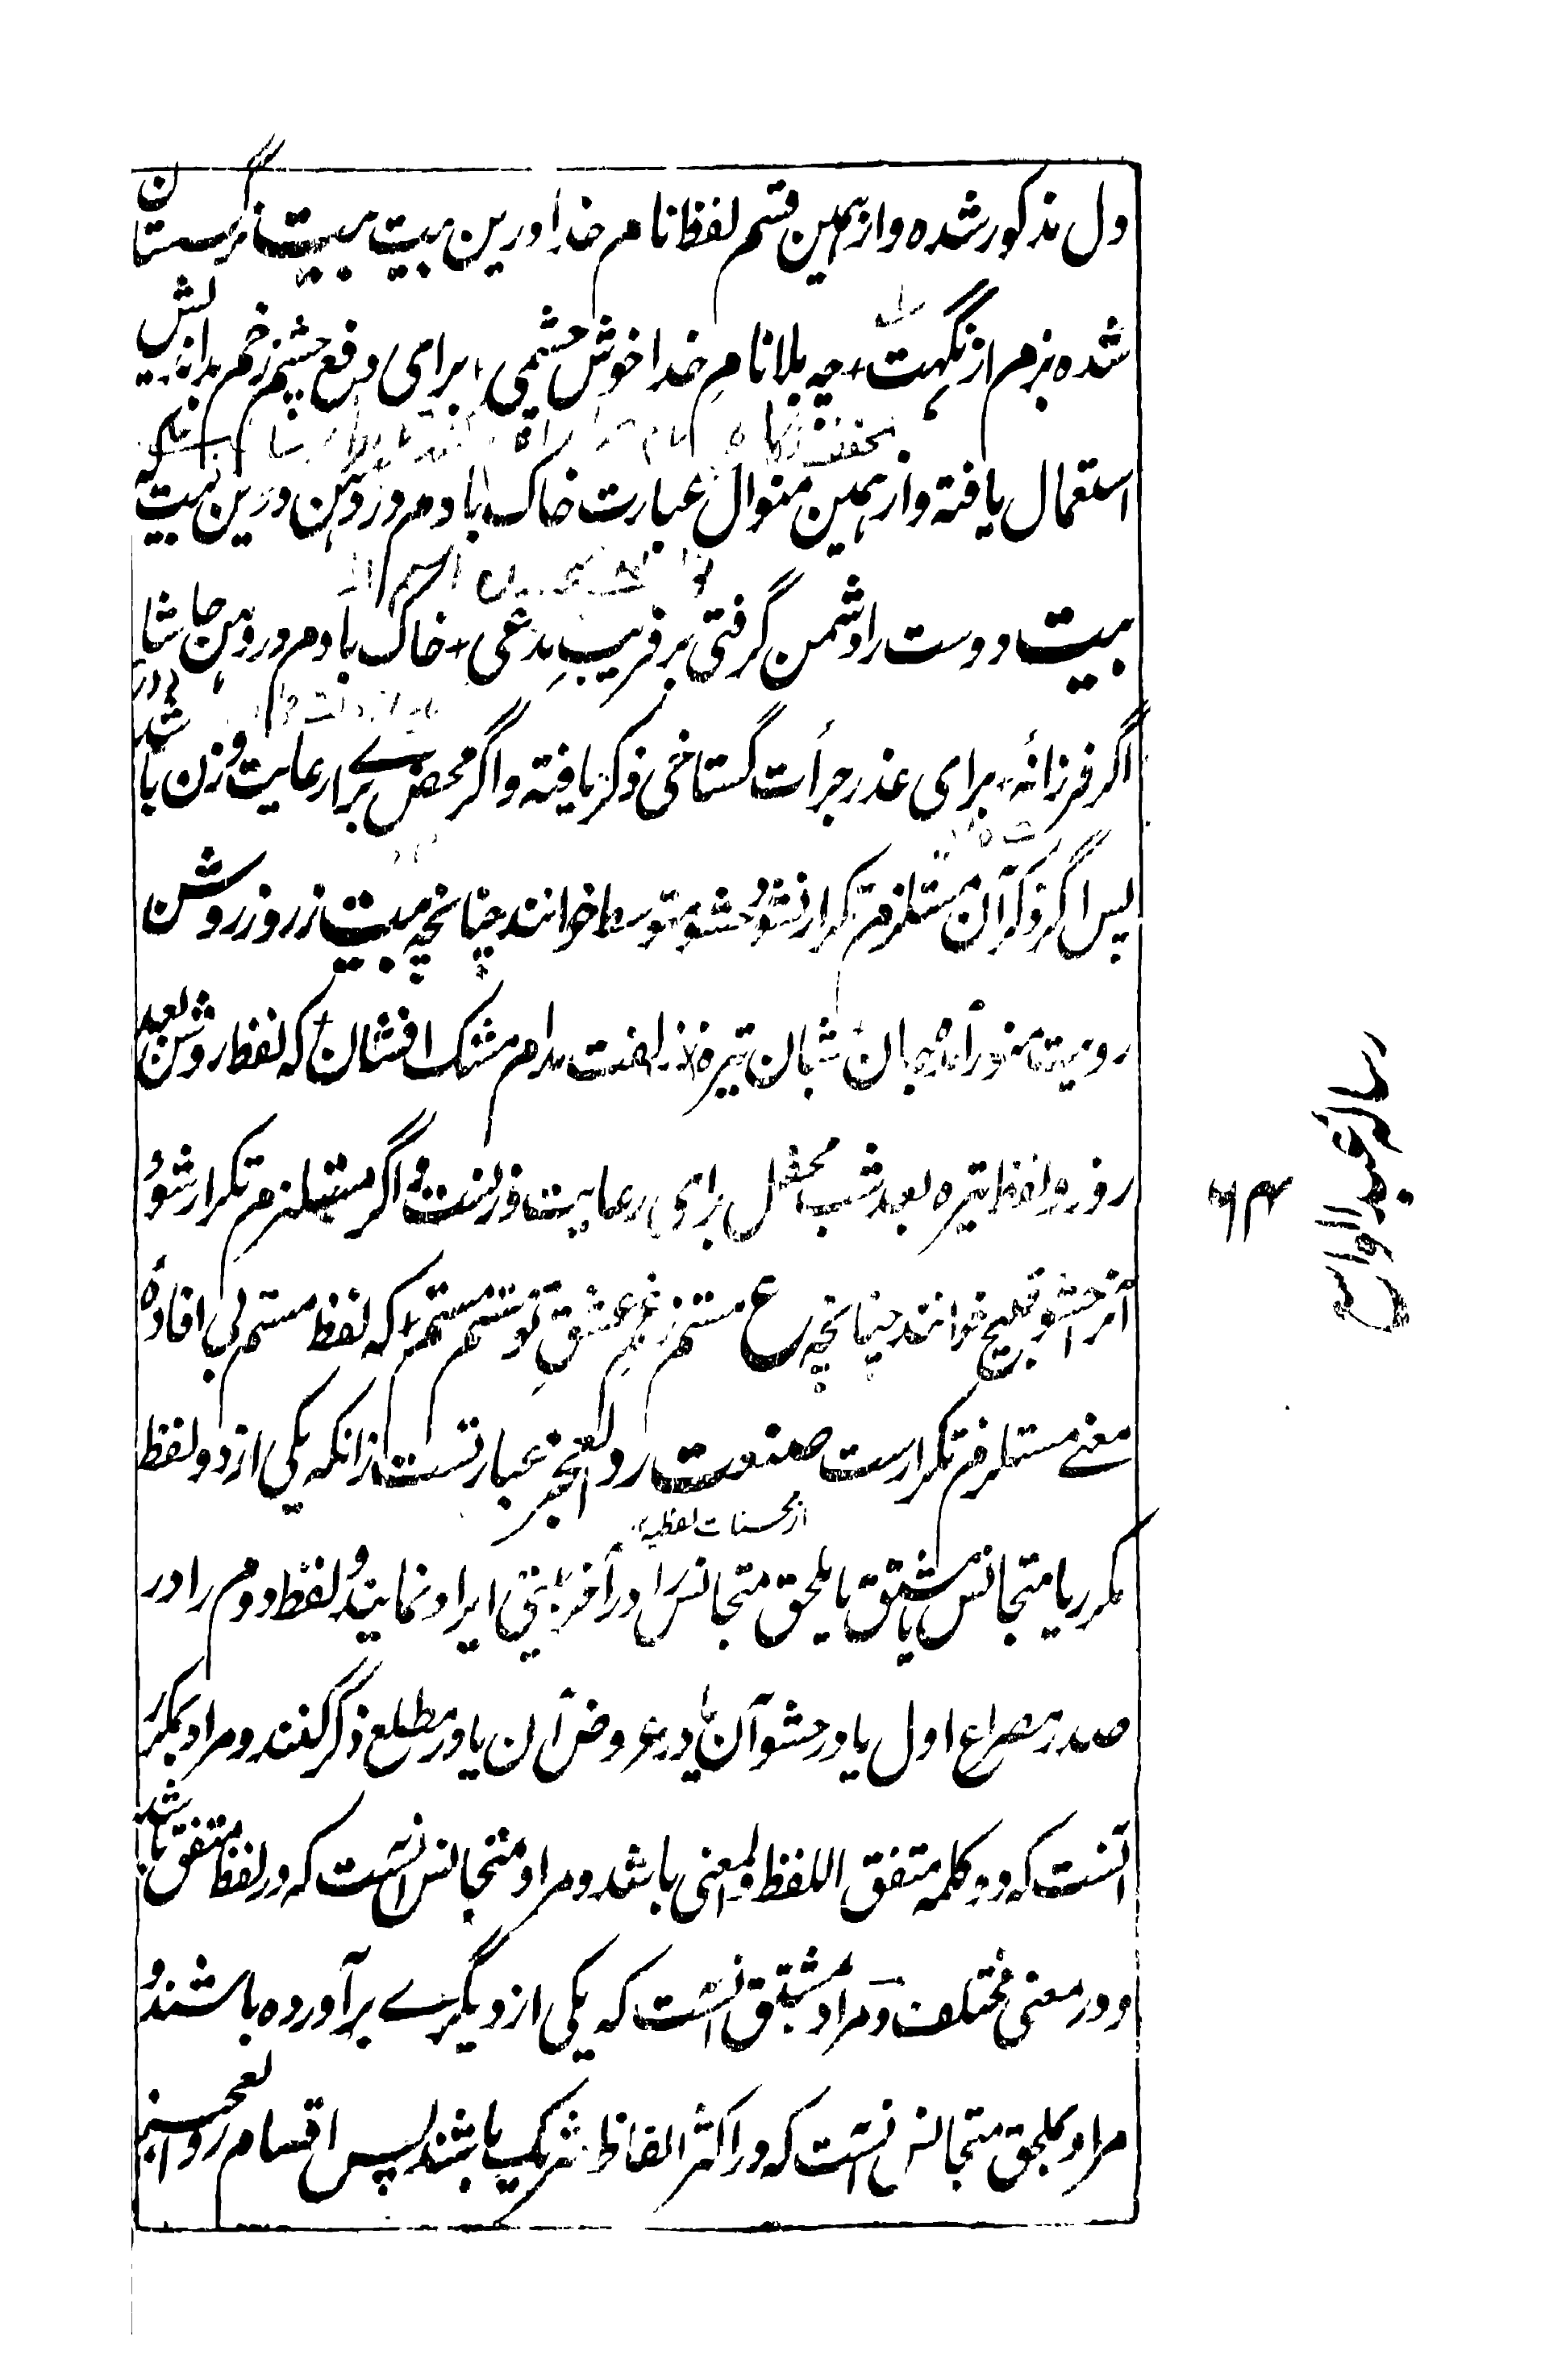 دل مذکور شده و از همین قسم لفظ نام خدا درین بیت بیت نرگستان
شده بزم از نگهت + چه بلا نامِ خدا خوش چشمی + برای دفع چشم زخم بداندیش
مخفف نگاه
استعمال یافته و از همین منوال عبارت خاک بادم در دهن درین بیت که
بیت دوست را دشمن گرفتی بر فریبِ مدعی + خاک بادم در دهن جانا
اگر فرزانهٔ + برای عذر جرأت گستاخی ذکر یافته و اگر محض برای رعایت وزن باشد
پس اگر ذکر آن مستلزم تکرار نشود حشو متوسط خوانند چنانچه بیت ز روز روشن
رویت منور آمد جان + شبان تیره ز زلفت مدام مشک افشان + که لفظ روشن بعد
روز و لفظ تیره بعد شب محض برای رعایت وزنست و اگر مستلزم تکرار شود
آنرا حشو قبیح خوانند چنانچه ع مستم ز غمِ عشقِ تو مستم مستم + که لفظ مستم بی افادهٔ
معنے مستلزم تکرار ست صنعت رد العجز عبارتست ازانکه یکی از دو لفظ
از محسنات لفظیه
مکرر یا متجانس یا مشتق یا ملحق متجانس را در آخر بیتی ایراد نمایند و لفظ دوم را در
صدر مصراع اول یا در حشو آن یا در عروض آن یا در مطلع ذکر کنند و مراد بمکرر
آنست که دو کلمه متفق اللفظ والمعنی باشد و مراد متجانس آنست که در لفظ متفق باشد
و در معنی مختلف و مراد بمشتق آنست که یکی از دیگرے برآورده باشند و
مراد بملحق متجانس آنست که در اکثر الفاظ شریک باشند پس اقسام رد العجز
رساله عبدالواسع
۶۴